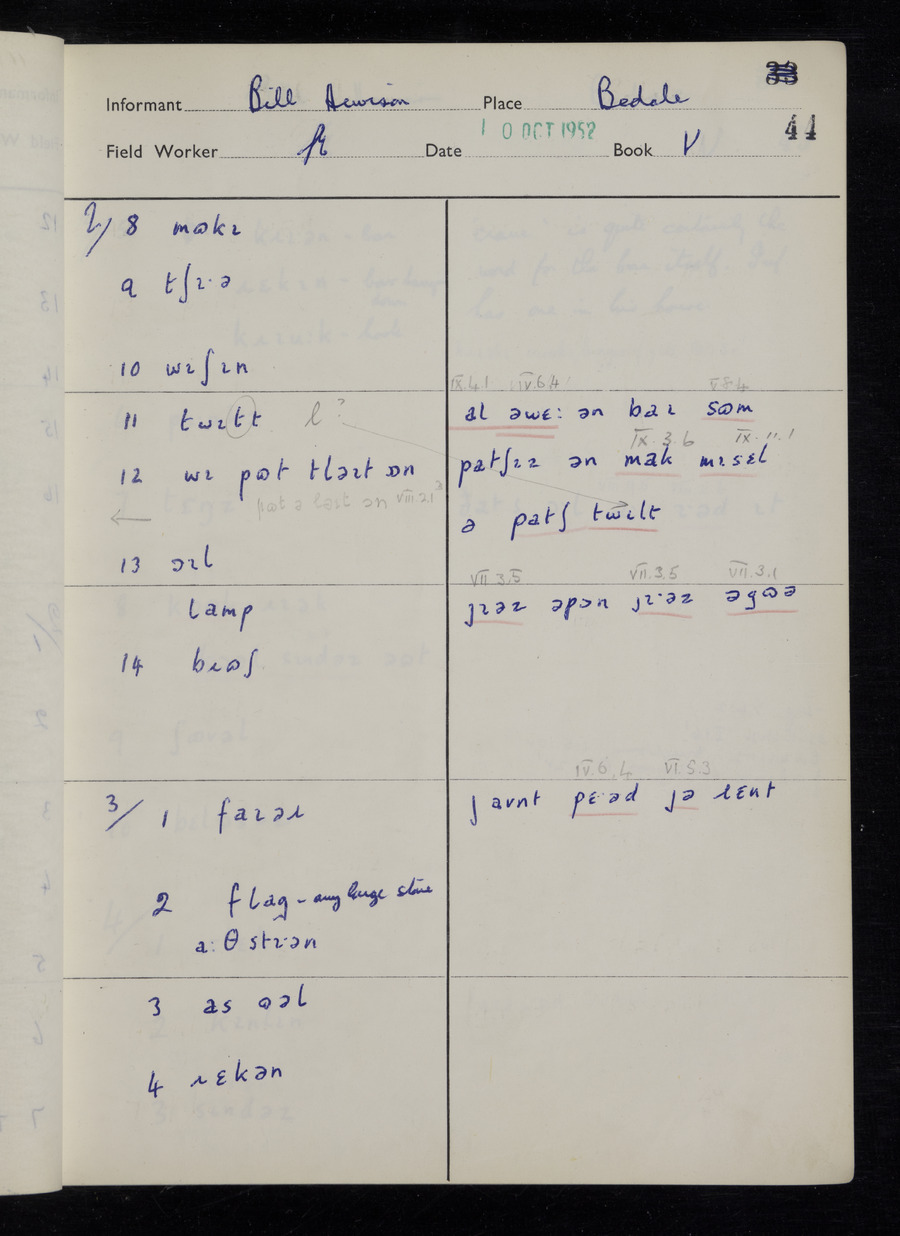 33
Informant Bill Hewison Place Bedale
44
Field Worker Date 10 OCT 1952 Book V
2/ 8 mɷkɪ
9 tʃɪ·ə
10 wɪʃɪn
IX.4.1 IV.6.4 V.8.4
11 twɪtt l? al əwɛ: ən baɪ sɷm
IX.3.6 IX.11.1
12 wɪ pɷt tləɪt ɒn patʃɪz ən mak mɪsɛl
← pɷt ə ləɪt ɔn VIII.2.1? ə patʃ twɪlt
13 ɔɪl
VII.3.5 VII.3.5 VII.3.1
lamp jɪəz əpɔn jɪ·əz əgɷə
14 bɹɷʃ
IV.6.4 VI.5.3
3/ 1 faɪəɹ ʃ aʊnt pɛ·əd jə ɹɛnt
2 flag - any large stone
a:θ stɪ·ən
3 as ɷəl
4 ɹɛkən